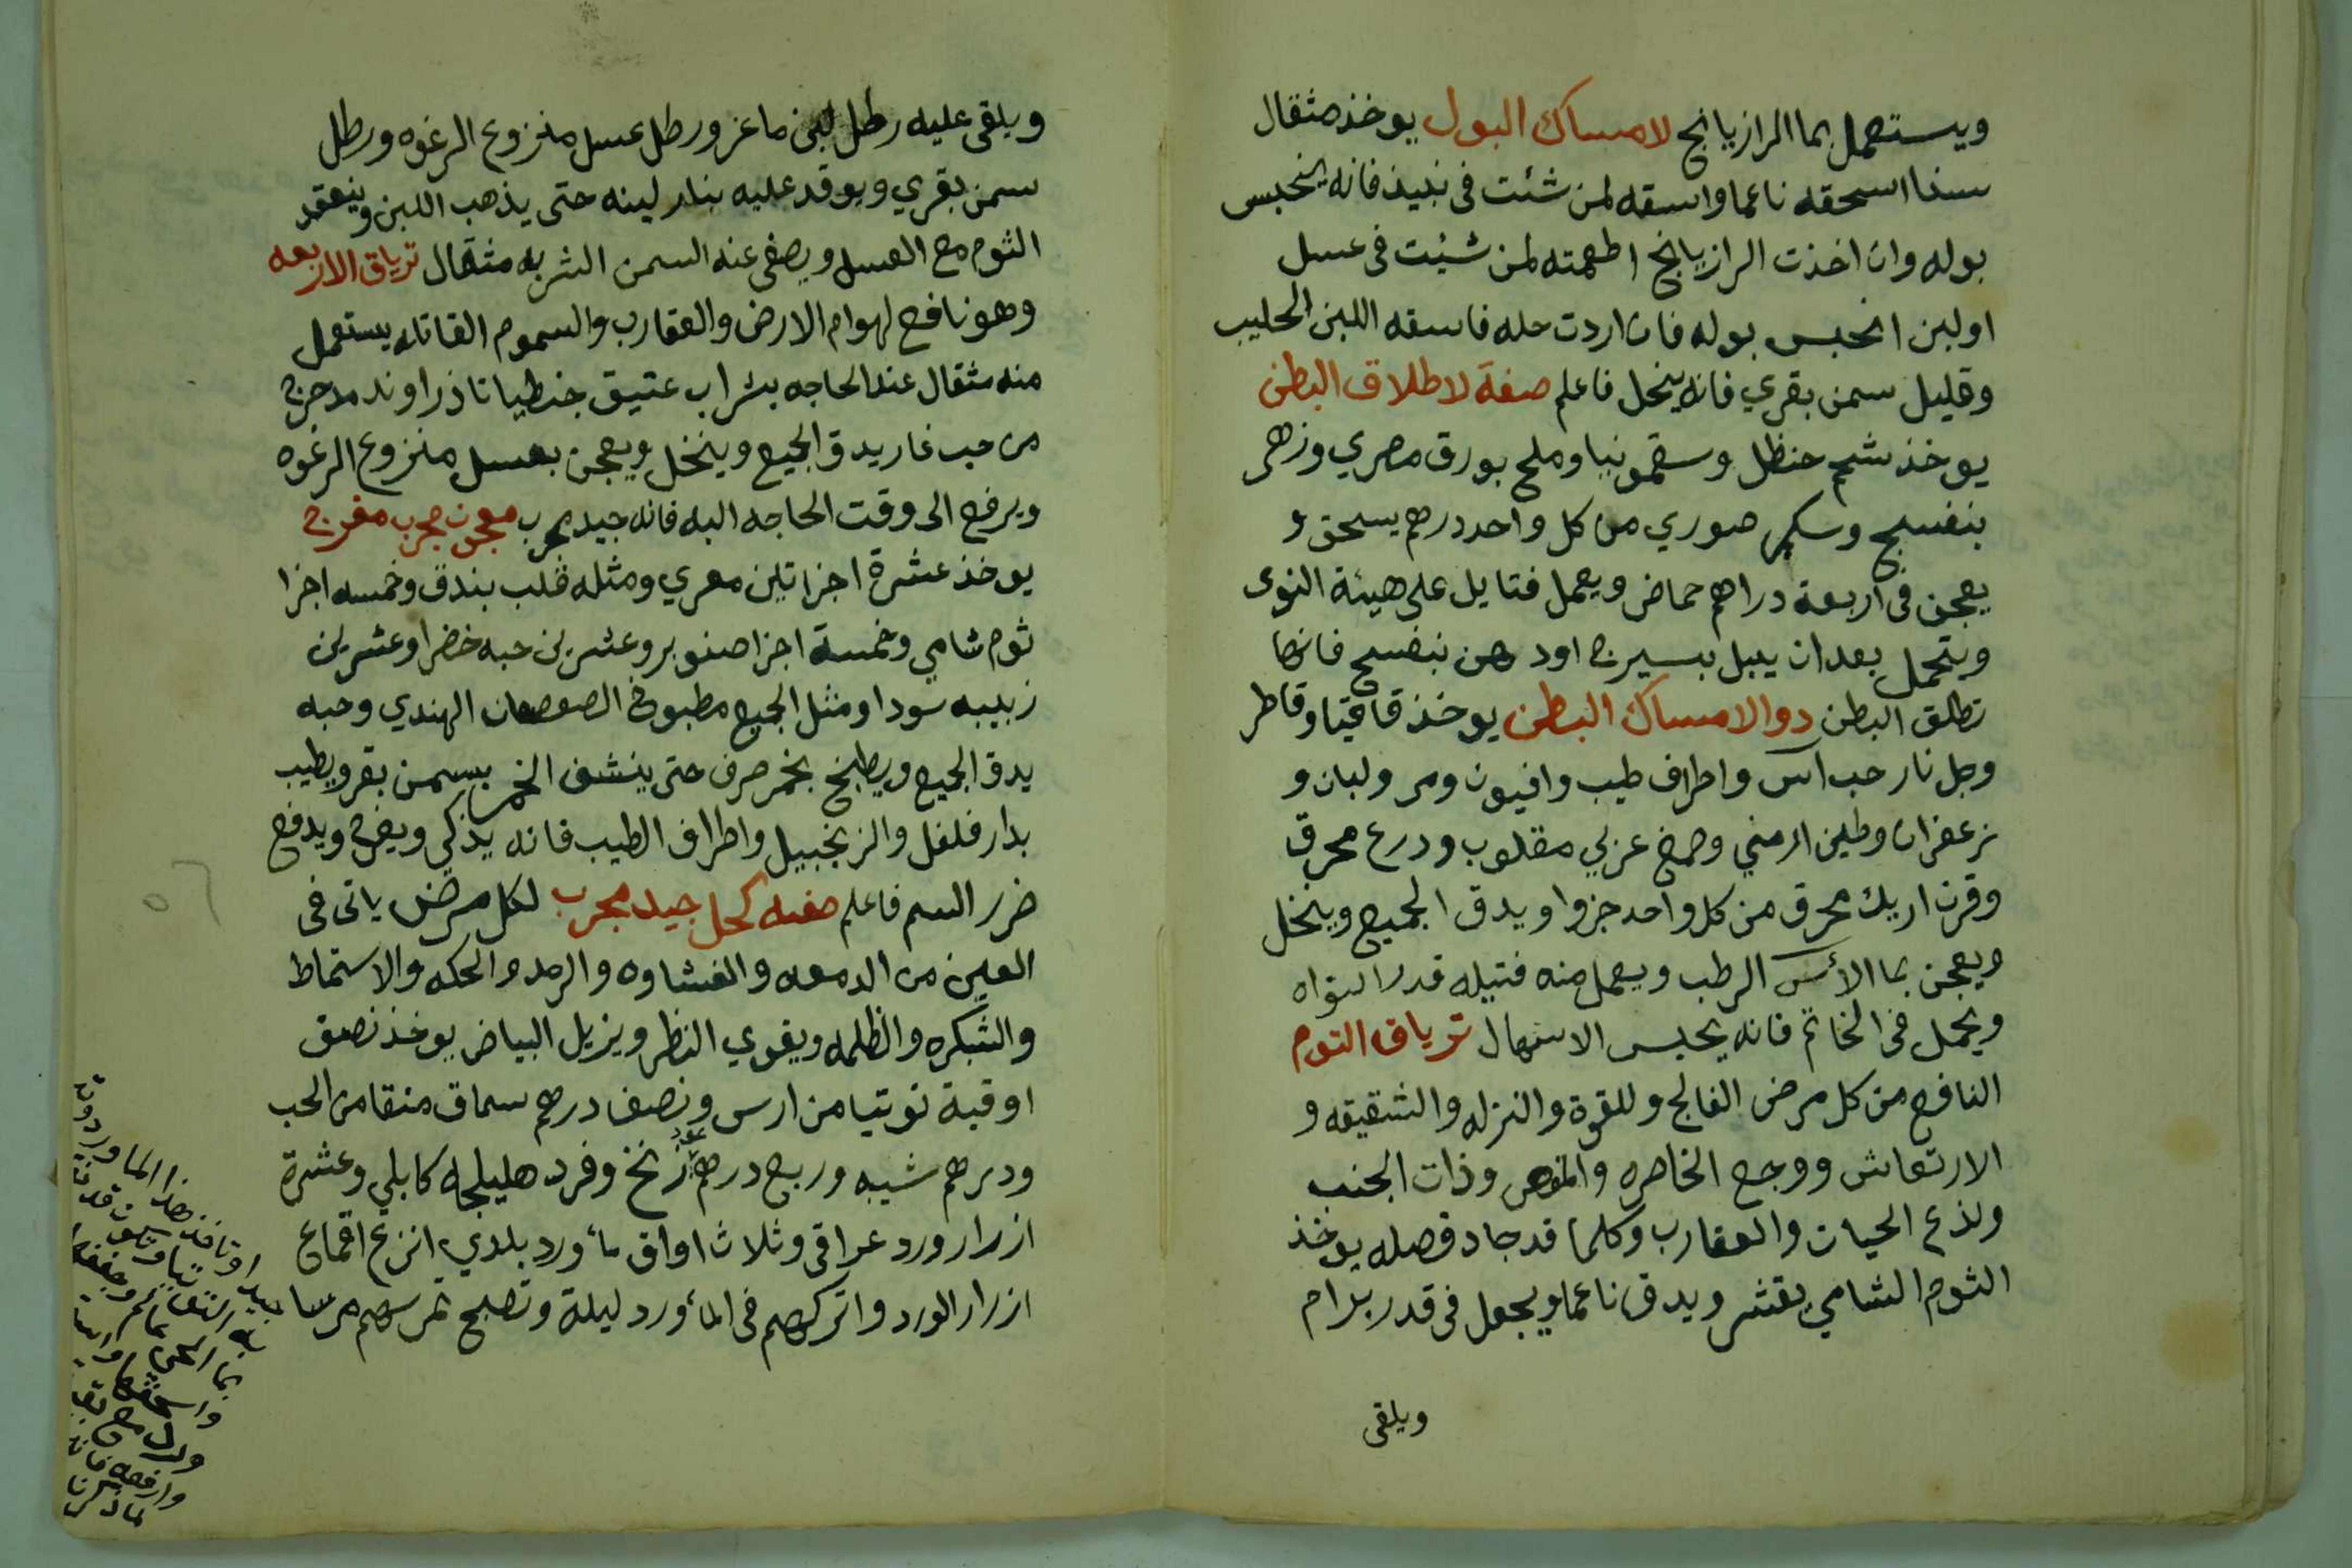 ويستعمل بما الرازيانج لامساك البول يوخذ مثقال
سنا اسحقه ناعما واسقه لمن شئت فى نبيذ فانه ينحبس
بوله وان اخذت الرازيانج اطعمته لمن شئت فى عسل
اولبن انحبس بوله فان اردت حله فاسقه اللبن الحليب
وقليل سمن بقري فانه ينحل فاعلم صفة لاطلاق البطن
يوخذ شحم حنظل وسقمونيا وملح بورق مصري وزهر
بنفسج وسكر صوري من كل واحد درهم يسحق و
يعجن فى اربعة دراهم حماض ويعمل فتايل على هيئة النوى
ويتحمل بعد ان يبل بسيرج اودهن بنفسج فانها
تطلق البطن دوا لامساك البطن يوخذ قاقيا وقاطر
وجل نار حب آس واطراف طيب وافيون ومر ولبان و
زعفران وطين ارمني وصمغ عربي مقلوب ودرع محرق
وقرن اريل محرق من كل واحد جزوا ويدق الجميع وينخل
ويعجن بما الأس الرطب ويعمل منه فتيله قدر النواه
ويحمل فى الخاتم فانه يحبس الاسهال ترياق الثوم
النافع من كل مرض الفالج وللقوة والنزله والشقيقه و
الارتعاش ووجع الخاصره والمغص وذات الجنب
ولذع الحيات والعقارب وكلما قد جاد فصله يوخذ
الثوم الشامي يقشر ويدق ناعما ويجعل فى قدر برام
ويلقى
ويلقى عليه رطل لبن ماعز ورطل عسل منزوع الرغوه ورطل
سمن بقري ويوقد عليه بنار لينه حتى يذهب اللبن وينعقد
الثوم مع العسل ويصفى عنه السمن الشربه مثقال ترياق الاربعه
وهو نافع لهوام الارض والعقارب والسموم القاتله يستعمل
منه مثقال عند الحاجه بشراب عتيق جنطيانا ذراوند مدحرج
مر حب غار يدق الجميع وينخل ويعجن بعسل منزوع الرغوه
ويرفع الى وقت الحاجه اليه فانه جيد مجرب معجون مجرب مفرح
يوخذ عشرة اجزا تين معري ومثله قلب بندق وخمسه اجزا
ثوم شامي وخمسة اجزا صنوبر وعشرين حبه خضرا وعشرين
زبيبه سودا ومثل الجميع مطبوخ الهندي وحبه
يدق الجميع ويطبخ بخمر صرف حتى ينشف الخمر بسمن بقر ويطيب
بدارفلفل والزنجبيل واطراف الطيب فانه يذكي ويفرح ويدفع
ضرر السم فاعلم صفة كحل جيد مجرب لكل مرض ياتى فى
العين من الدمعه والغشاوه والرمد والحكه والاستماط
والشبكره والظلمه ويقوي النظر ويزيل البياض يوخذ نصف
اوقية توتيا من ارس ونصف درهم سماق منقا من الحب
ودرهم شيبه وربع درهم زرنخ وفرد هليلجه كابلي وعشرة
ازرار ورد عراقى وثلاث اواق مأورد بلدي انزع اقماع
ازرار الورد واتركهم فى المأورد ليلة وتصبح تمرسهم مرسا
جيدا وتاخذ هذا الماورد
وارفعه
لما ذكرنا